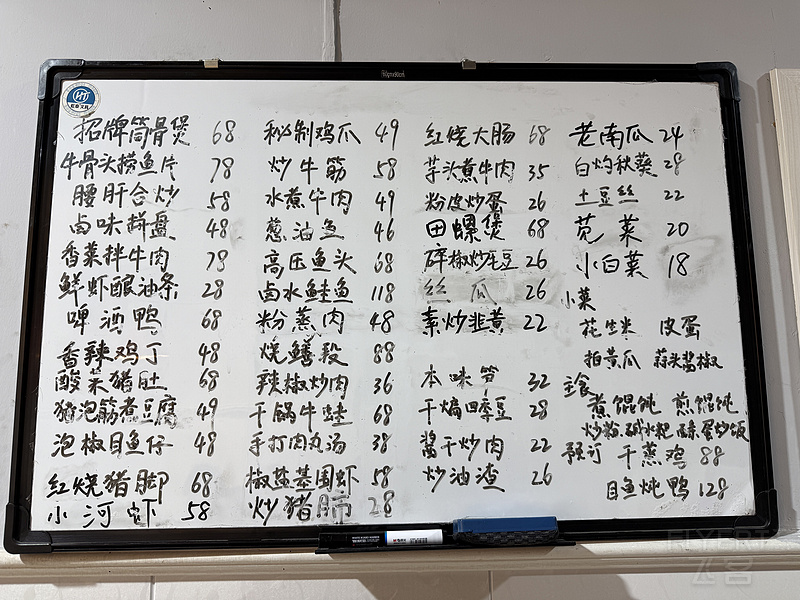 招牌筒骨煲 68
牛骨头捞鱼片 78
腰肝合炒 58
卤味拼盘 48
香菜拌牛肉 78
鲜虾酿油条 28
啤酒鸭 68
香辣鸡丁 48
酸菜猪肚 68
猪泡筋煮豆腐 49
泡椒目鱼仔 48
红烧猪脚 68
小河虾 58
秘制鸡爪 49
炒牛筋 58
水煮牛肉 49
葱油鱼 46
高压鱼头 68
卤水鲑鱼 118
粉蒸肉 48
烧鳝段 88
辣椒炒肉 36
干锅牛蛙 68
手打肉丸汤 38
椒盐基围虾 58
炒猪肺 28
红烧大肠 68
芋头煮牛肉 35
粉皮炒蛋 26
田螺煲 68
碎椒炒毛豆 26
丝瓜 26
素炒韭黄 22
本味笋 32
干煸四季豆 28
酱干炒肉 22
炒油渣 26
老南瓜 24
白灼秋葵 28
土豆丝 22
苋菜 20
小白菜 18
小菜
花生米 皮蛋
拍黄瓜 蒜头酱椒
主食
煮馄饨 煎馄饨
炒粉 碱水粑 蛋炒饭
预订 干蒸鸡 88
目鱼炖鸭 128
FLYERT